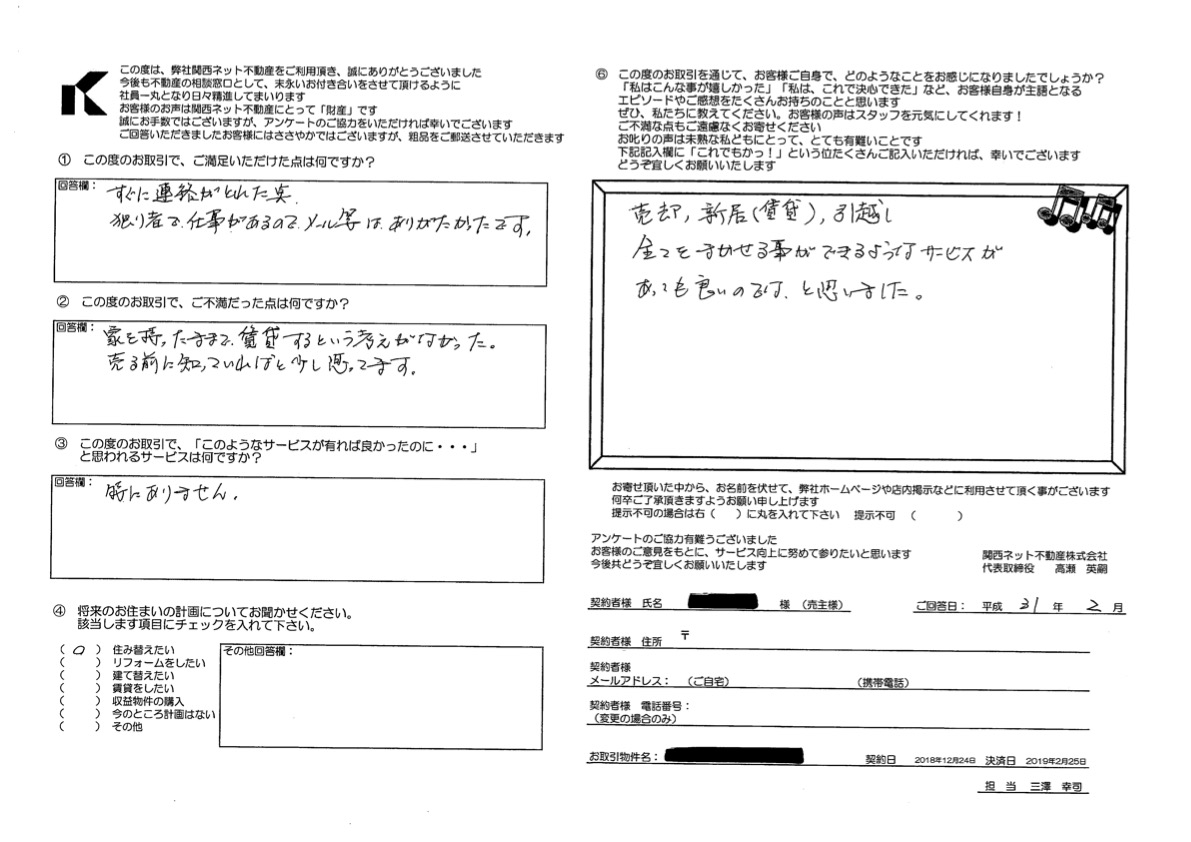 この度は、弊社関西ネット不動産をご利用頂き、誠にありがとうございました
今後も不動産の相談窓口として、末永いお付き合いをさせて頂けるように
社員一丸となり日々精進してまいります
お客様のお声は関西ネット不動産にとって「財産」です
誠にお手数ではございますが、アンケートのご協力をいただければ幸いでございます
ご回答いただきましたお客様にはささやかではございますが、粗品をご郵送させていただきます
① この度のお取引で、ご満足いただけた点は何ですか？
回答欄：
すぐに連絡がとれた実.
独り者で、仕事があるので、メール等は、ありがたかったです。
② この度のお取引で、ご不満だった点は何ですか？
回答欄：
家を持ったままで、賃貸するという考えがなかった。
売る前に知っていればと少し思ってます。
③ この度のお取引で、「このようなサービスが有れば良かったのに・・・」
と思われるサービスは何ですか？
回答欄：
特にありません。
④ 将来のお住まいの計画についてお聞かせください。
該当します項目にチェックを入れて下さい。
（ ○ ） 住み替えたい
（　　） リフォームをしたい
（　　） 建て替えたい
（　　） 賃貸をしたい
（　　） 収益物件の購入
（　　） 今のところ計画はない
（　　） その他
その他回答欄：
⑥ この度のお取引を通じて、お客様ご自身で、どのようなことをお感じになりましたでしょうか？
「私はこんな事が嬉しかった」「私は、これで決心できた」など、お客様自身が主語となる
エピソードやご感想をたくさんお持ちのことと思います
ぜひ、私たちに教えてください。お客様の声はスタッフを元気にしてくれます！
ご不満な点もご遠慮なくお寄せください
お叱りの声は未熟な私どもにとって、とても有難いことです
下記記入欄に「これでもかっ！」という位たくさんご記入いただければ、幸いでございます
どうぞ宜しくお願いいたします
売却，新居(賃貸)，引越し
全てをまかせる事ができるようなサービスが
あっても良いのでは、と思いました。
お寄せ頂いた中から、お名前を伏せて、弊社ホームページや店内掲示などに利用させて頂く事がございます
何卒ご了承頂きますようお願い申し上げます
提示不可の場合は右（　　）に丸を入れて下さい　提示不可　（　　　　）
アンケートのご協力有難うございました
お客様のご意見をもとに、サービス向上に努めて参りたいと思います
今後共どうぞ宜しくお願いいたします
関西ネット不動産株式会社
代表取締役　高瀬　英嗣
契約者様 氏名　様（売主様）　ご回答日： 平成 31 年 2 月
契約者様 住所　〒
契約者様
メールアドレス：　（ご自宅）　（携帯電話）
契約者様 電話番号：
（変更の場合のみ）
お取引物件名：　契約日　2018年12月24日　決済日　2019年2月25日
担　当　三澤　幸司